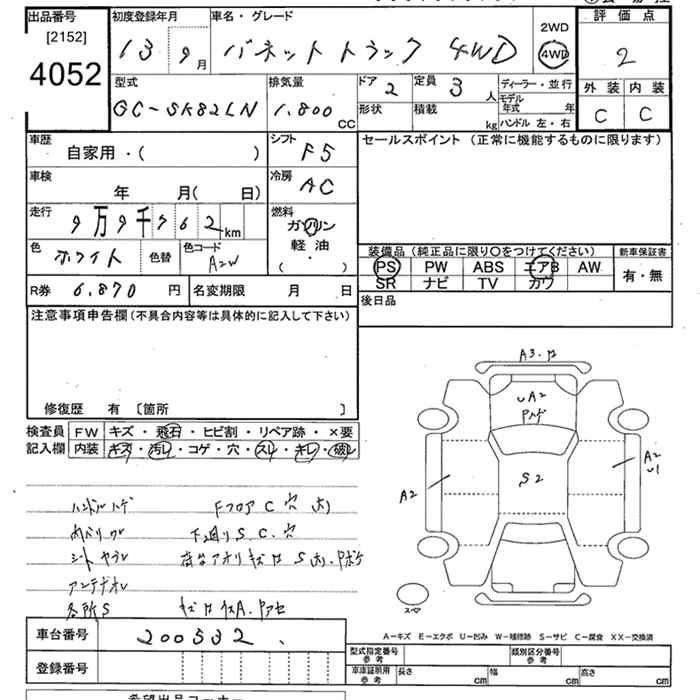 出品番号 初度登録年月 車名・グレード 2WD 評価点
[2152] 13 9月 バネットトラック 4WD 4WD 2
4052 型式 排気量 ドア 2 定員 3人 ディーラー・並行 外装 内装
GC-SK82LN 1,800CC 形状 積載 kg モデル年式 年 C C
ハンドル 左・右
車歴 自家用・( ) シフト F5 セールスポイント (正常に機能するものに限ります)
車検 年 月( 日) 冷房 AC
走行 9万9千762km 燃料 ガソリン
軽油
( )
色 ホワイト 色替 色コード 装備品(純正品に限り○をつけてください) 新車保証書
PS PW ABS エアB AW 有・無
SR ナビ TV カワ
R券 6,870円 名変期限 月 日 後日品
注意事項申告欄(不具合内容等は具体的に記入して下さい)
修復歴 有 〔箇所 〕
検査員 FW キズ・飛石・ヒビ割・リペア跡・×要
記入欄 内装 キズ・汚レ・コゲ・穴・スレ・キレ・破レ
A3.
A2
S2
A2
A2
U1
ハンドルハゲ FフロアC穴
下廻りS.C.穴
各所S
スペア
A-キズ E-エクボ U-凹み W-補修跡 S-サビ C-腐食 XX-交換済
車台番号 200532
登録番号
型式指定番号 参考 類別区分番号 参考
車庫証明用 参考 長さ cm 幅 cm 高さ cm
希望出品コーナー